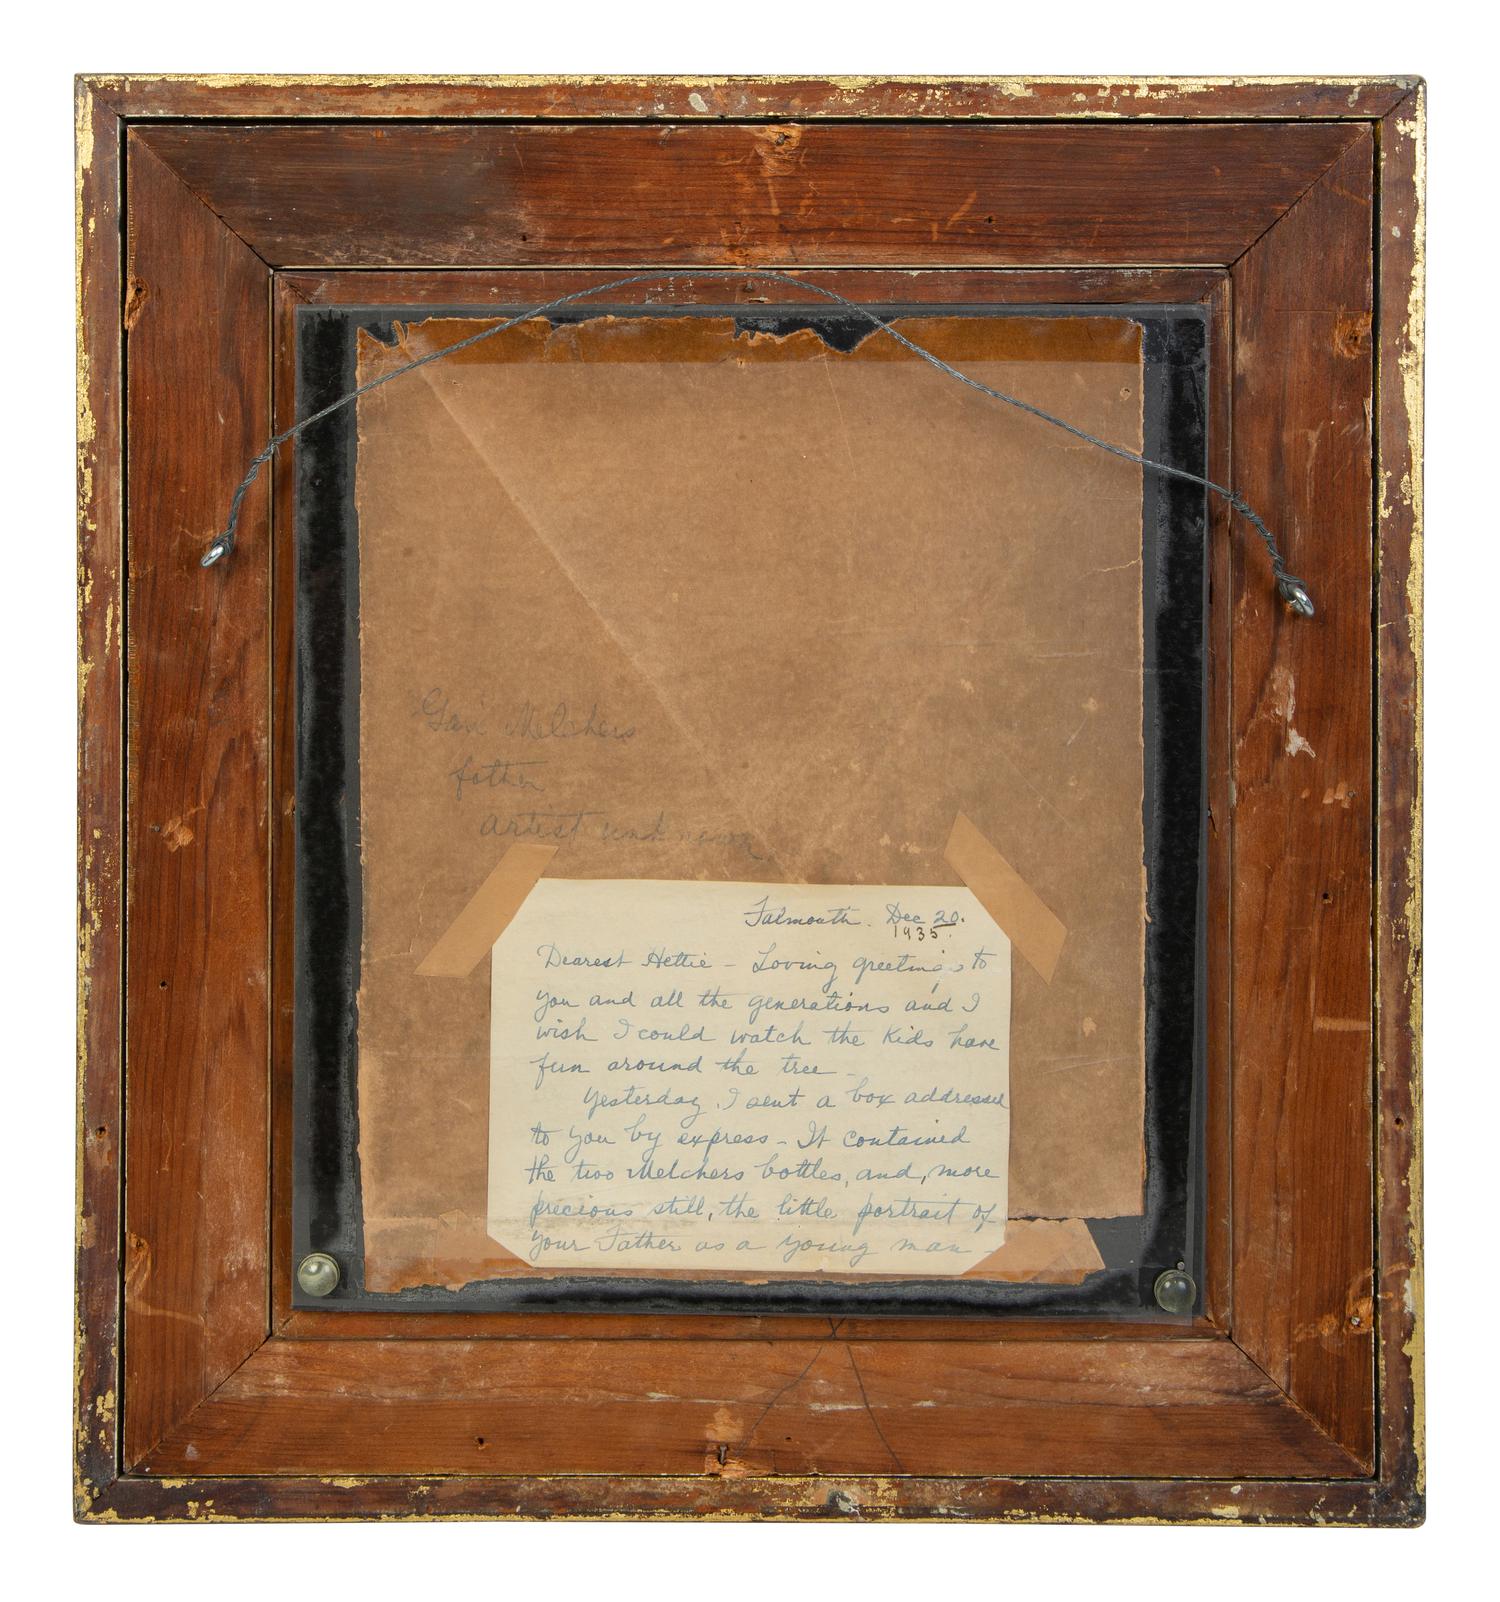 Gari Melchers
father
artist unknown
Falmouth. Dec 20.
1935.
Dearest Hettie - Loving greetings to
you and all the generations and I
wish I could watch the kids have
fun around the tree -
Yesterday I sent a box addressed
to you by express - It contained
the two Melchers bottles, and, more
precious still, the little portrait of
your Father as a young man -